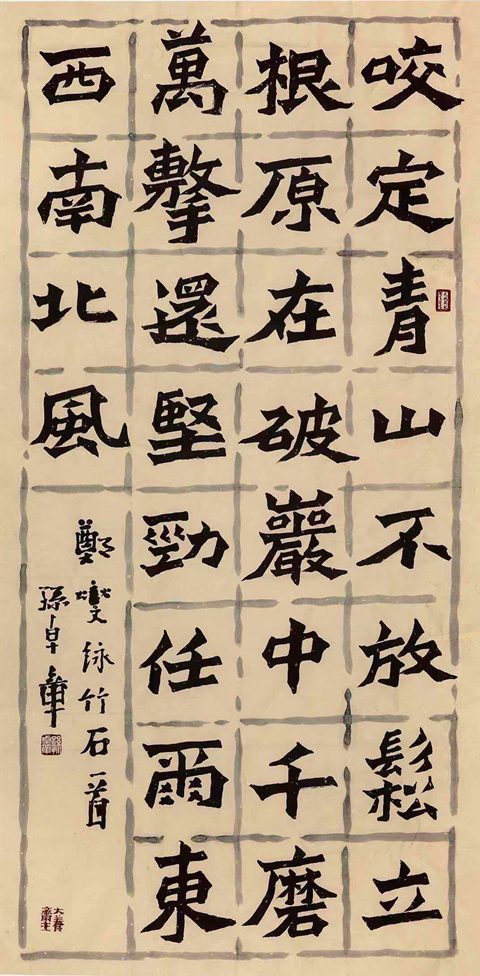 咬定青山不放鬆立
根原在破巖中千磨
萬擊還堅勁任爾東
西南北風
鄭燮詠竹石一首
孫皁軍
大養
齋主